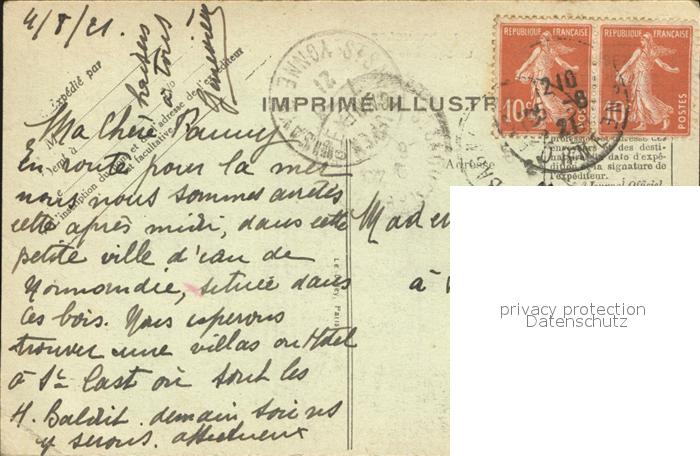 4/8/21.
baisers
à tous !
Expédié par
IMPRIME ILLUSTR
REPUBLIQUE FRANÇAISE
10c
POSTES
REPUBLIQUE FRANÇAISE
10c
POSTES
L'inscription du nom et de l'adresse de l'Expéditeur
est facultative
Adresse
professionnelle
des desti-
date d'expé-
la signature de
l'expéditeur.
Journal Officiel
Ma Chère Fanny
En route pour la mer
nous nous sommes arrêtés
cette après midi, dans cette
petite ville d'eau de
Normandie, située dans
les bois. Nous esperons
trouver une villas ou Hôtel
à St Cast où sont les
H. Baldit. demain soir ns
y serons. affectueux
Madem
à
privacy protection
Datenschutz